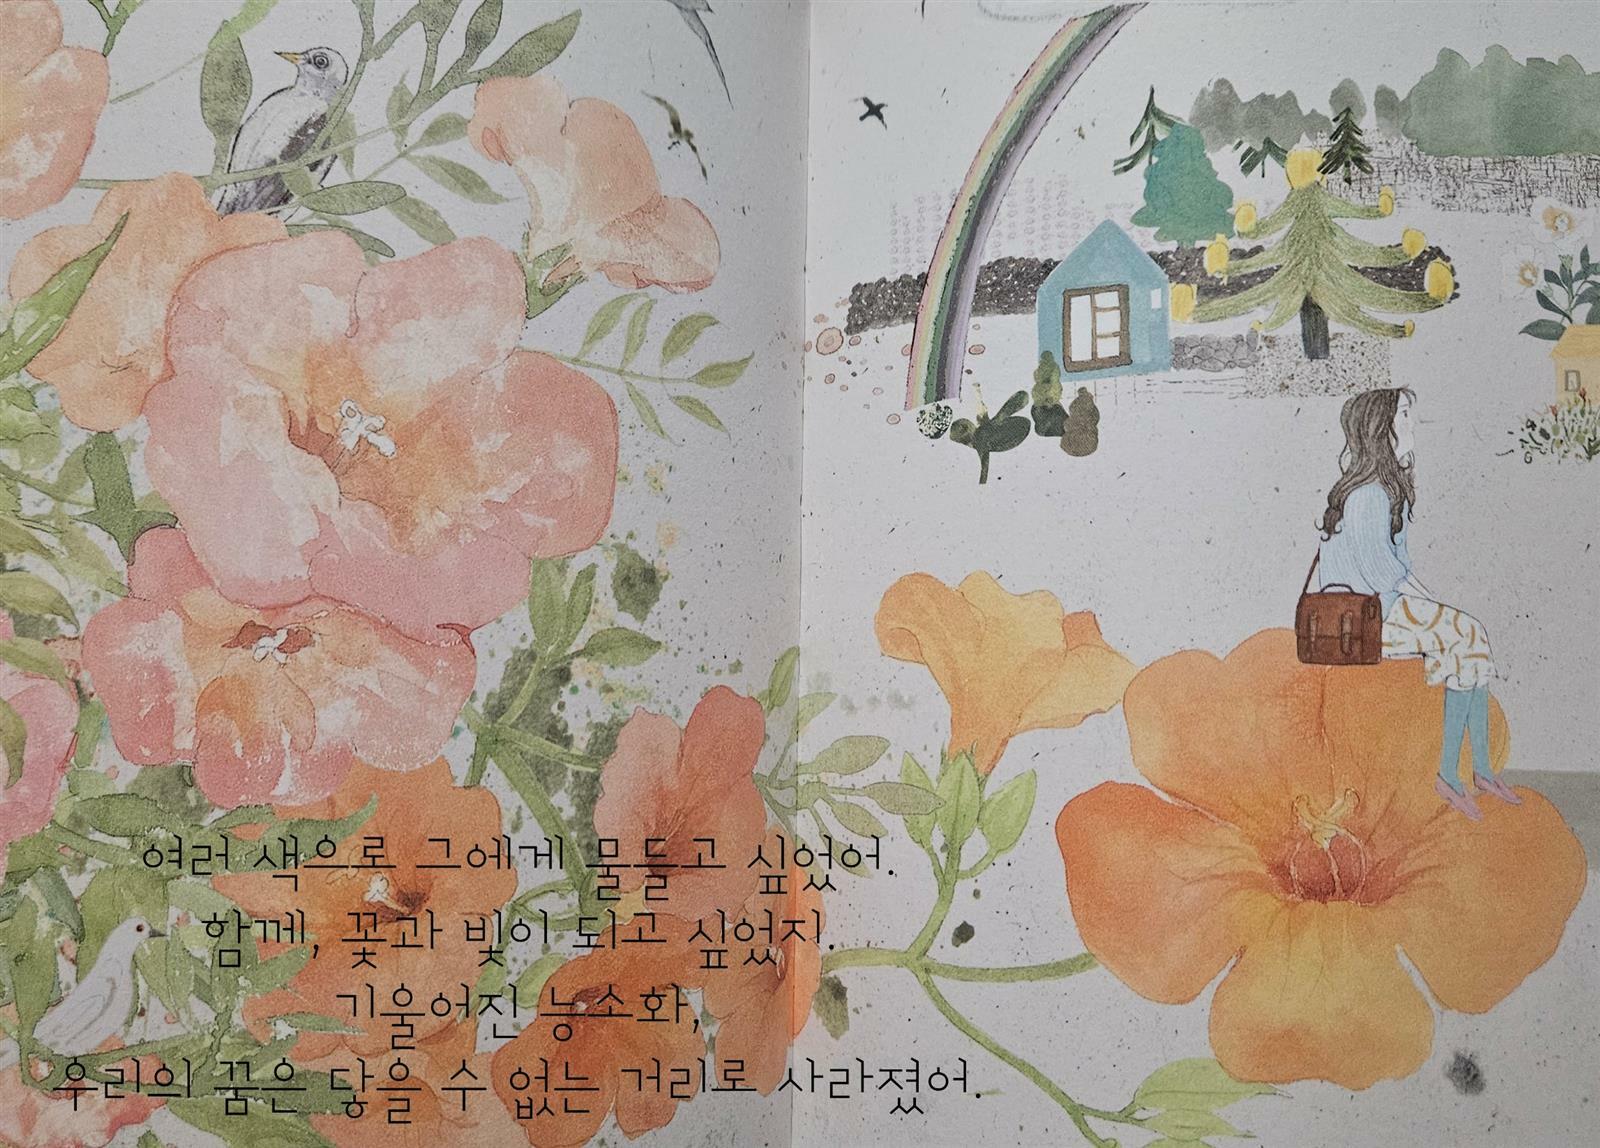 여러 색으로 그에게 물들고 싶었어.
함께, 꽃과 빛이 되고 싶었지.
기울어진 능소화,
우리의 꿈은 닿을 수 없는 거리로 사라졌어.